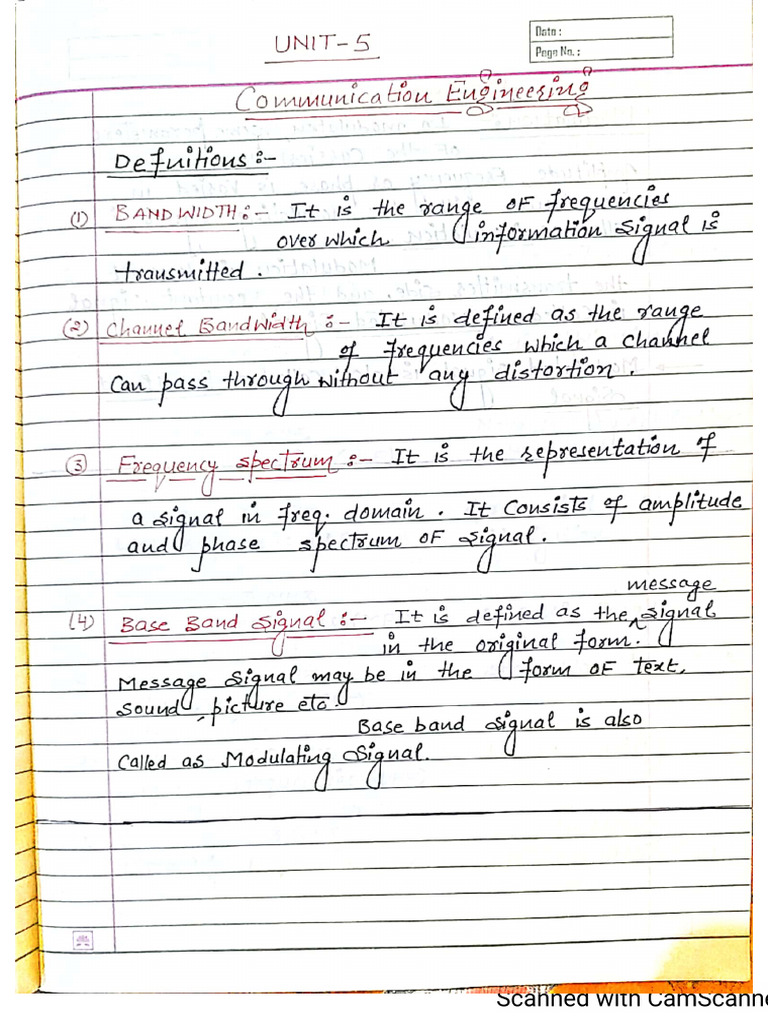 UNIT-5
Date :
Page No. :
Communication Engineering
Definitions :-
(1) BANDWIDTH :- It is the range of frequencies
over which information signal is
transmitted.
(2) Channel Bandwidth :- It is defined as the range
of frequencies which a channel
can pass through without any distortion.
(3) Frequency spectrum :- It is the representation of
a signal in freq. domain. It consists of amplitude
and phase spectrum of signal.
message
(4) Base Band Signal :- It is defined as the ^ signal
in the original form.
Message signal may be in the form of text,
sound, picture etc.
Base band signal is also
called as Modulating Signal.
Scanned with CamScanne